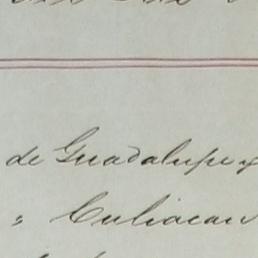 de Guadalupe y
" Culiacan